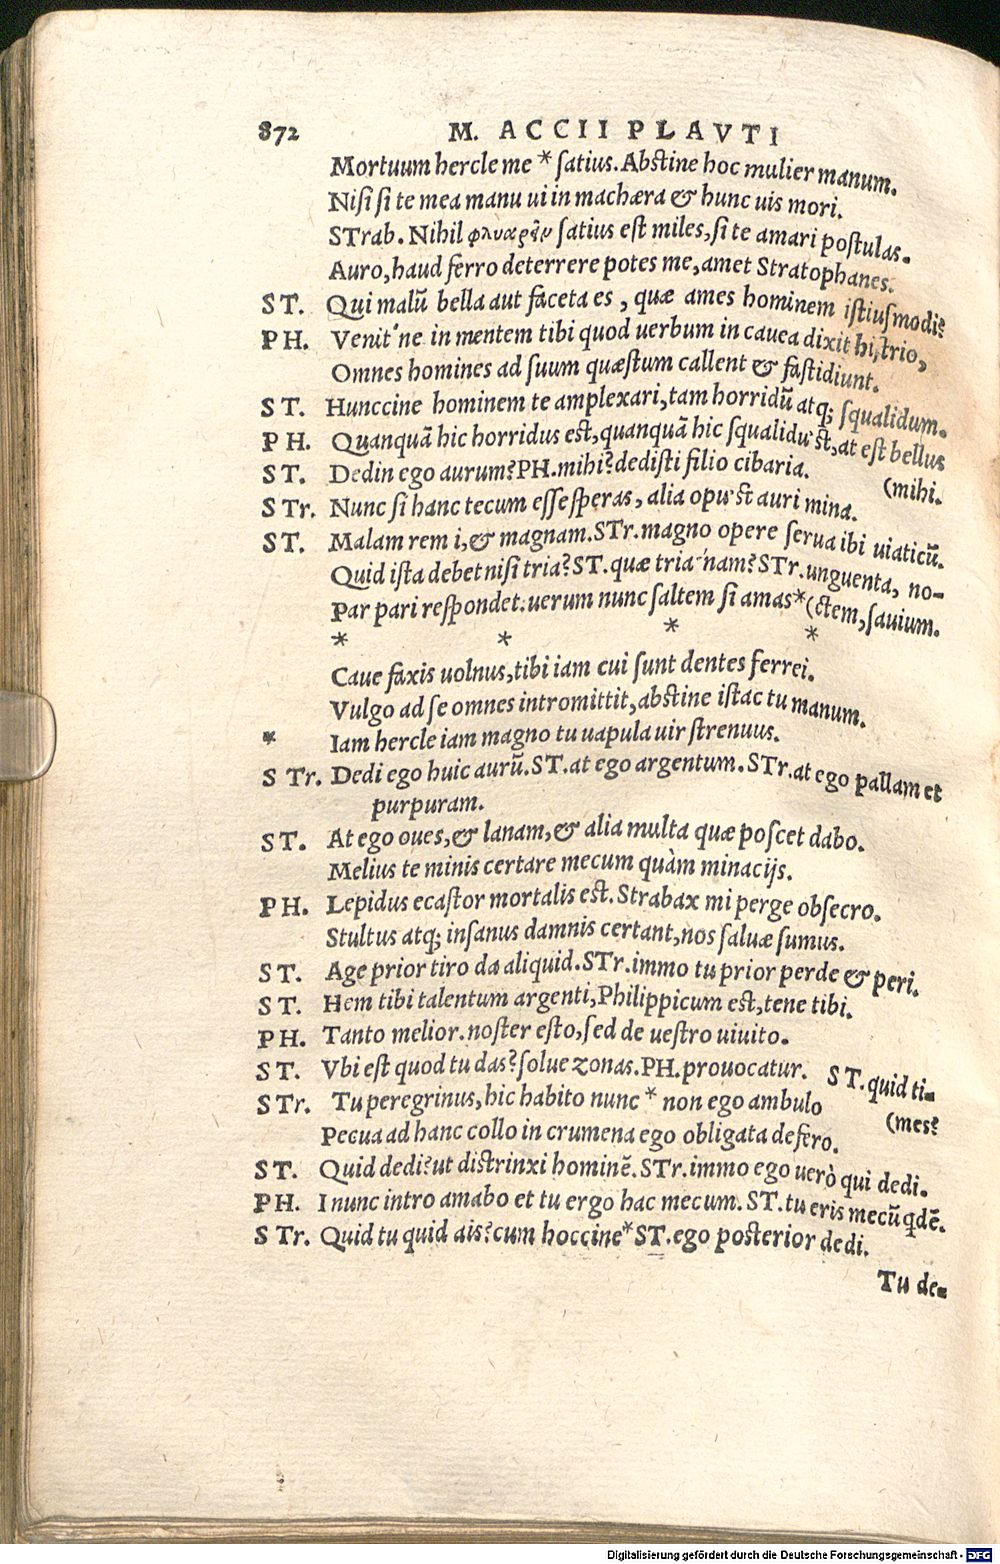 872 M. ACCII PLAVTI
Mortuum hercle me * satius. Abstine hoc mulier manum.
Nisi si te mea manu ui in machæra & hunc uis mori.
STrab. Nihil φλυαρεῖν satius est miles, si te amari postulas.
Auro, haud ferro deterrere potes me, amet Stratophanes.
ST. Qui malū bella aut faceta es, quæ ames hominem istiusmodi?
PH. Venit'ne in mentem tibi quod uerbum in cauea dixit histrio,
Omnes homines ad suum quæstum callent & fastidiunt.
ST. Hunccine hominem te amplexari, tam horridū atq; squalidum.
PH. Quanquā hic horridus est, quanquā hic squalidu'st, at est bellus
(mihi.
ST. Dedin ego aurum? PH. mihi? dedisti filio cibaria.
STr. Nunc si hanc tecum esse speras, alia opu'st auri mina.
ST. Malam rem i, & magnam. STr. magno opere serua ibi uiaticū.
Quid ista debet nisi tria? ST. quæ tria'nam? STr. unguenta, no-
(ctem, sauium.
Par pari respondet. uerum nunc saltem si amas*
* * * *
Caue faxis uolnus, tibi iam cui sunt dentes ferrei.
Vulgo ad se omnes intromittit, abstine istac tu manum.
* Iam hercle iam magno tu uapula uir strenuus.
STr. Dedi ego huic aurū. ST. at ego argentum. STr. at ego pallam et
purpuram.
ST. At ego oues, & lanam, & alia multa quæ poscet dabo.
Melius te minis certare mecum quàm minacijs.
PH. Lepidus ecastor mortalis est. Strabax mi perge obsecro.
Stultus atq; insanus damnis certant, nos saluæ sumus.
ST. Age prior tiro da aliquid. STr. immo tu prior perde & peri.
ST. Hem tibi talentum argenti, Philippicum est, tene tibi.
PH. Tanto melior. noster esto, sed de uestro uiuito.
ST. Vbi est quod tu das? solue zonas. PH. prouocatur. ST. quid ti-
(mes?
STr. Tu peregrinus, hic habito nunc * non ego ambulo
Pecua ad hanc collo in crumena ego obligata defero.
ST. Quid dedi? ut districxi hominē. STr. immo ego uerò qui dedi.
PH. I nunc intro amabo et tu ergo hac mecum. ST. tu eris mecū qdē.
STr. Quid tu quid ais? cum hoccine* ST. ego posterior dedi.
Tu de-
Digitalisierung gefördert durch die Deutsche Forschungsgemeinschaft - DFG